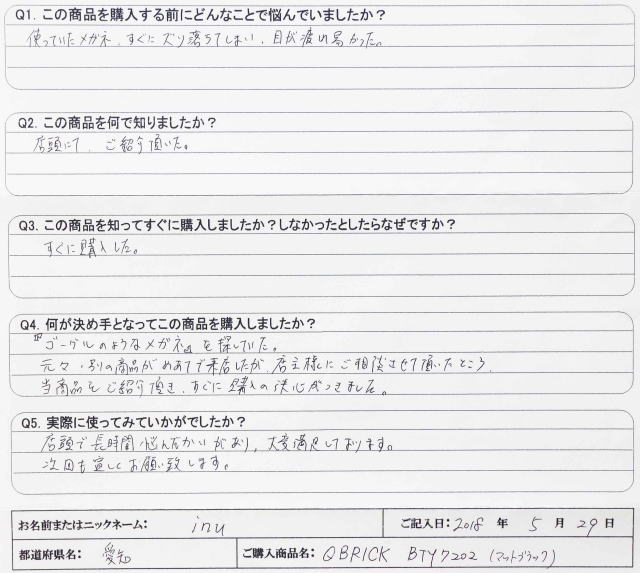 Q1. この商品を購入する前にどんなことで悩んでいましたか？
使っていたメガネ、すぐにズリ落ちてしまい、目が渡れ易かった。
Q2. この商品を何で知りましたか？
店頭にて、ご紹介頂いた。
Q3. この商品を知ってすぐに購入しましたか？しなかったとしたらなぜですか？
すぐに購入した。
Q4. 何が決め手となってこの商品を購入しましたか？
『ゴーグルのようなメガネ』を探していた。
元々、別の商品がめあてで来店したが、店主様にご相談させて頂いたところ、
当商品をご紹介頂き、すぐに購入の決心がつきました。
Q5. 実際に使ってみていかがでしたか？
店頭で長時間悩んだかいがあり、大変満足しております。
次回も宜しくお願い致します。
お名前またはニックネーム： inu
ご記入日：2018 年 5 月 29 日
都道府県名： 愛知
ご購入商品名： QBRICK BTY7202 (マットブラック)